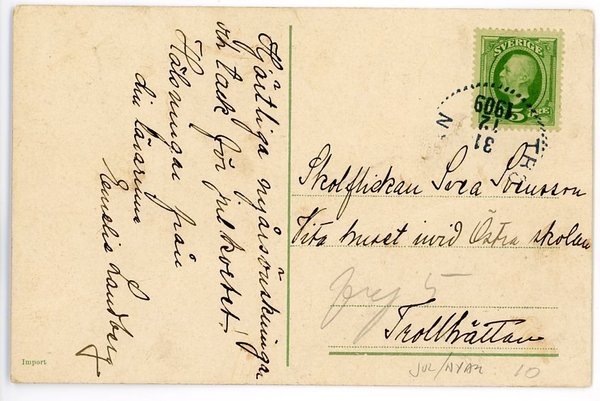 Hjärtliga nyårsönskningar
och tack för julkortet!
Hälsningar från
din lärarinna
Emelie Landberg
SVERIGE
5 ÖRE
31
12
1909
Skolflickan Svea Svensson
Vita huset invid Östra skolan
Trollhättan
Import
JUL/NYÅR 10